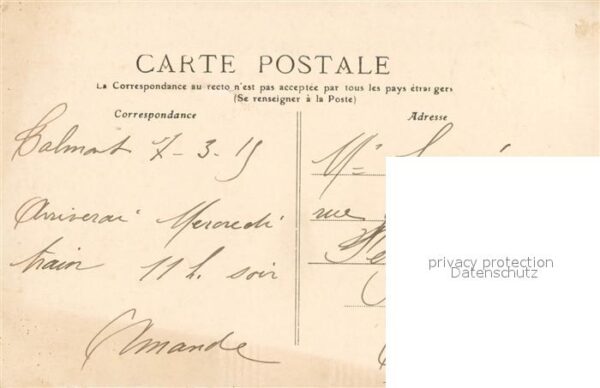 CARTE POSTALE
La Correspondance au recto n'est pas acceptée par tous les pays étrangers
(Se renseigner à la Poste)
Correspondance
Adresse
Balmont 7-3-15
Arriverai Mercredi
train 11 h. soir
Amande
rue
privacy protection
Datenschutz